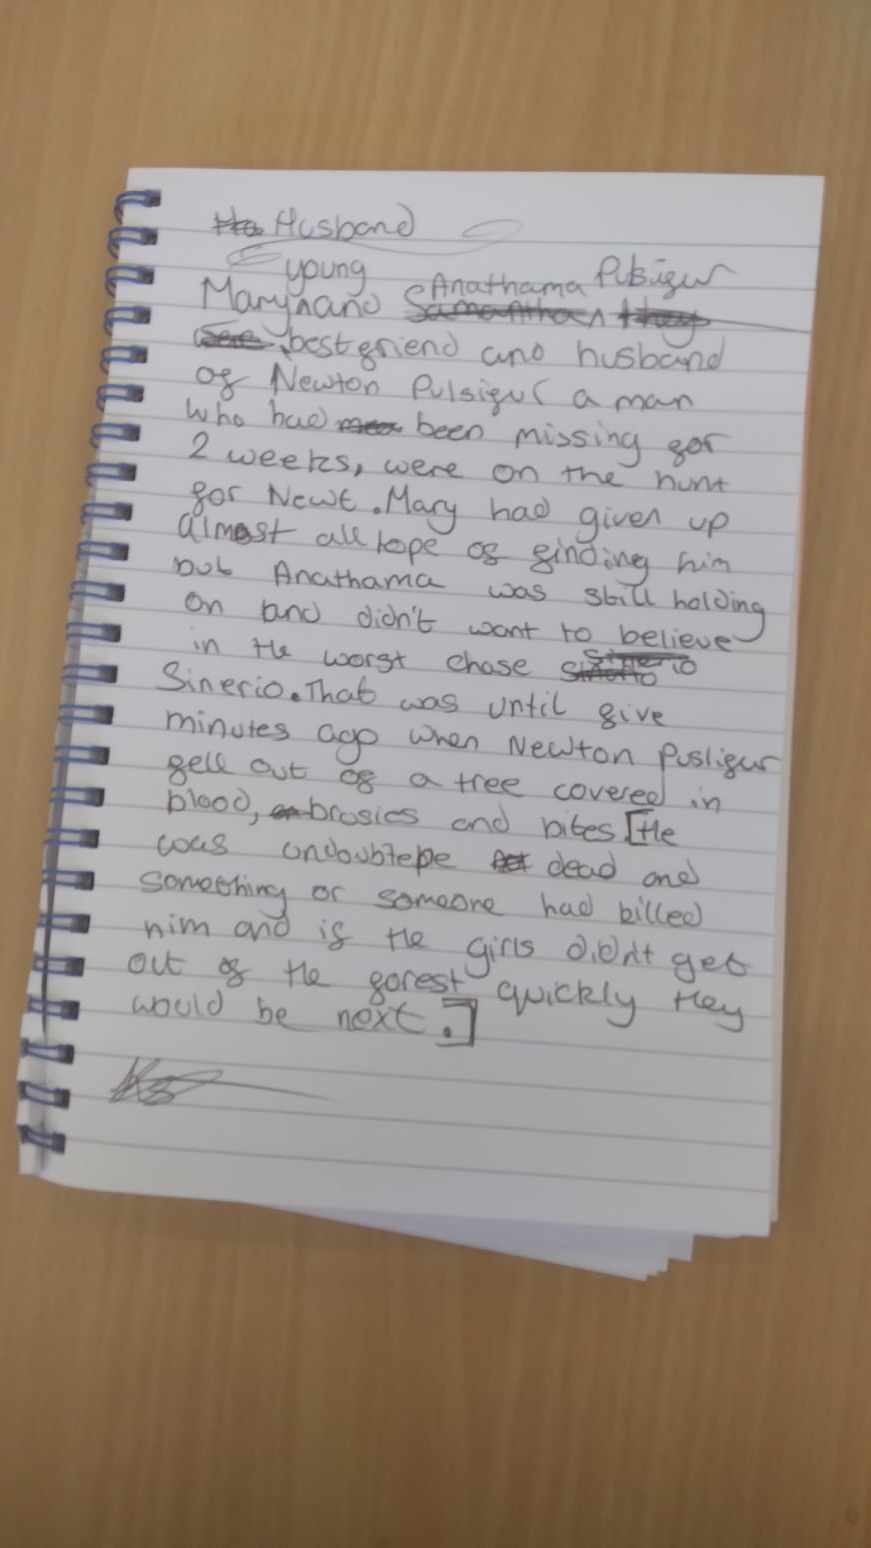 Husband
young Anathama Pulsigur
Mary and
bestfriend and husband
of Newton Pulsigur a man
who had been missing for
2 weeks, were on the hunt
for Newt. Mary had given up
almost all hope of finding him
but Anathama was still holding
on and didn't want to believe
in the worst chase
Sinerio. That was until five
minutes ago when Newton Pusligur
fell out of a tree covered in
blood, brusies and bites [He
was undoubtepe dead and
something or someone had killed
him and if the girls didn't get
out of the forest quickly they
would be next.]